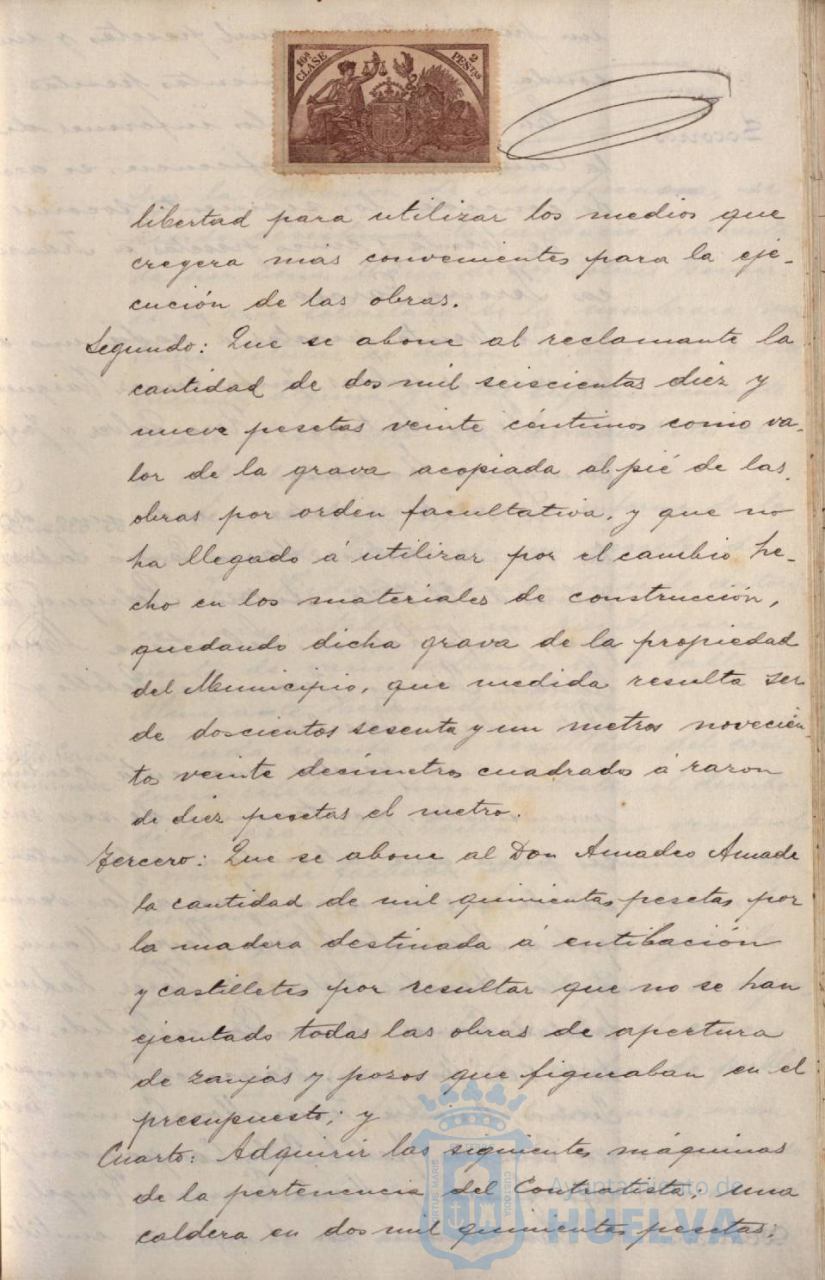 10ª CLASE
2 PESTAS
libertad para utilizar los medios que
creyera más convenientes para la eje-
cución de las obras.
Segundo: Que se abone al reclamante la
cantidad de dos mil seiscientas diez y
nueve pesetas veinte céntimos como va-
lor de la grava acopiada al pié de las
obras por orden facultativa, y que no
ha llegado á utilizar por el cambio he-
cho en los materiales de construcción,
quedando dicha grava de la propiedad
del Municipio, que medida resulta ser
de doscientos sesenta y un metros novecien-
tos veinte decímetros cuadrados á razon
de diez pesetas el metro.
Tercero: Que se abone al Don Amadeo Amade
la cantidad de mil quinientas pesetas por
la madera destinada á entibación
y castilletes por resultar que no se han
ejecutado todas las obras de apertura
de zanjas y pozos que figuraban en el
presupuesto; y
Cuarto: Adquirir las siguientes máquinas
de la pertenencia del Contratista: una
caldera en dos mil quinientas pesetas;
Ayuntamiento de
HUELVA